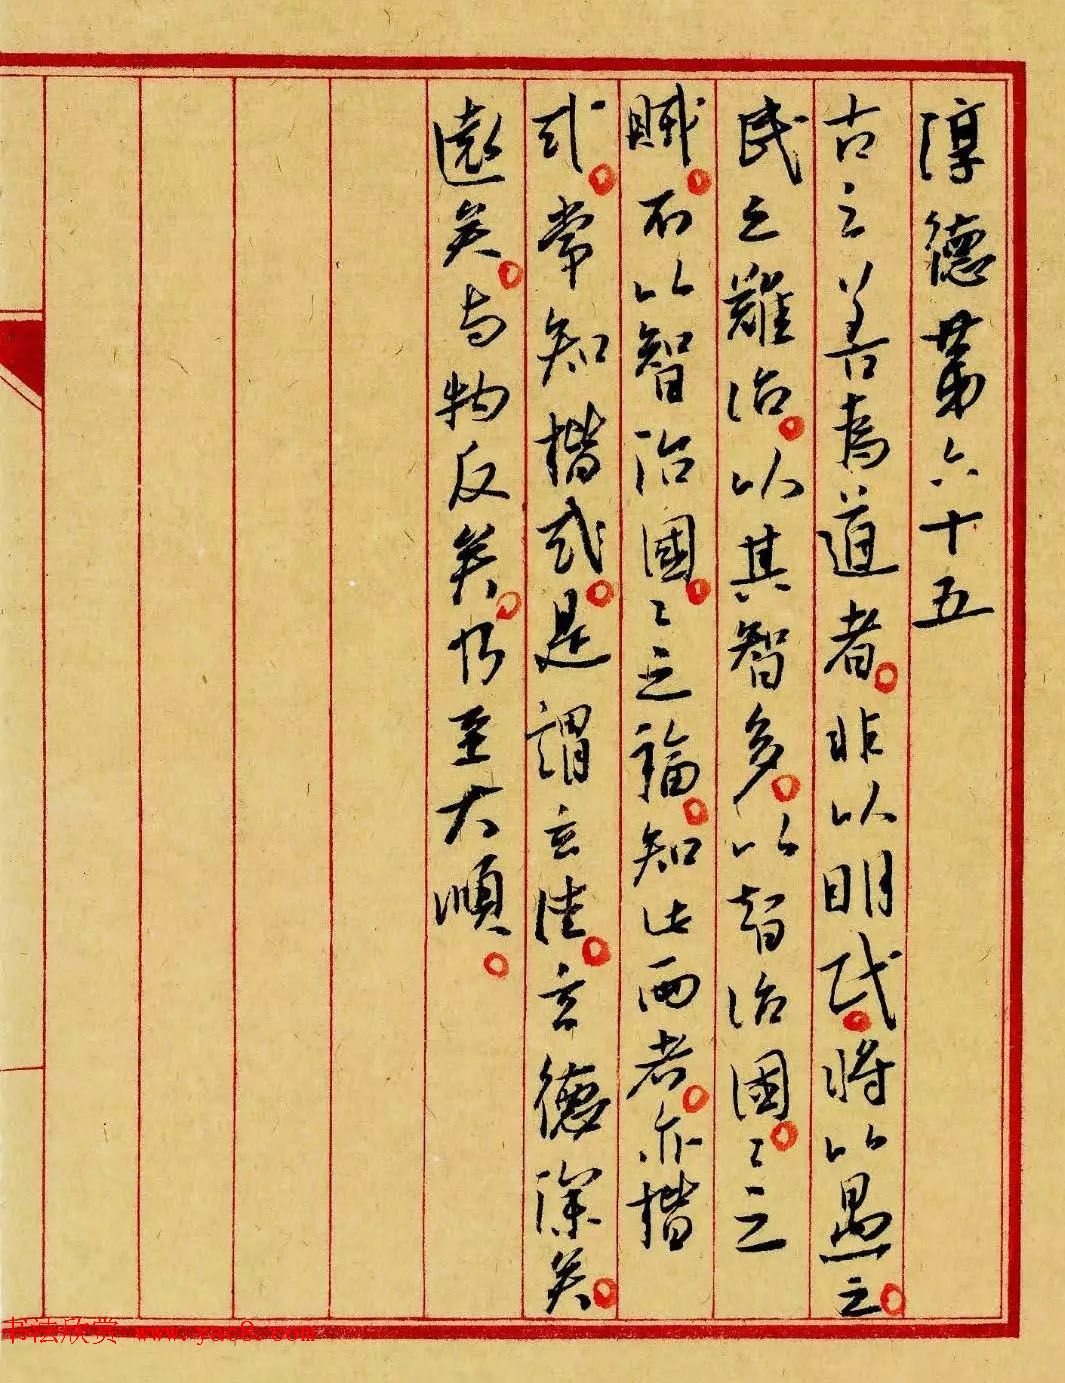 淳德第六十五
古之善為道者。非以明民。將以愚之。
民之難治。以其智多。以智治國。〻之
賊。不以智治國。〻之福。知此兩者。亦楷
式。常知楷式。是謂玄德。玄德深矣。
遠矣。与物反矣。乃至大順。
书法欣赏 www.yac8.com